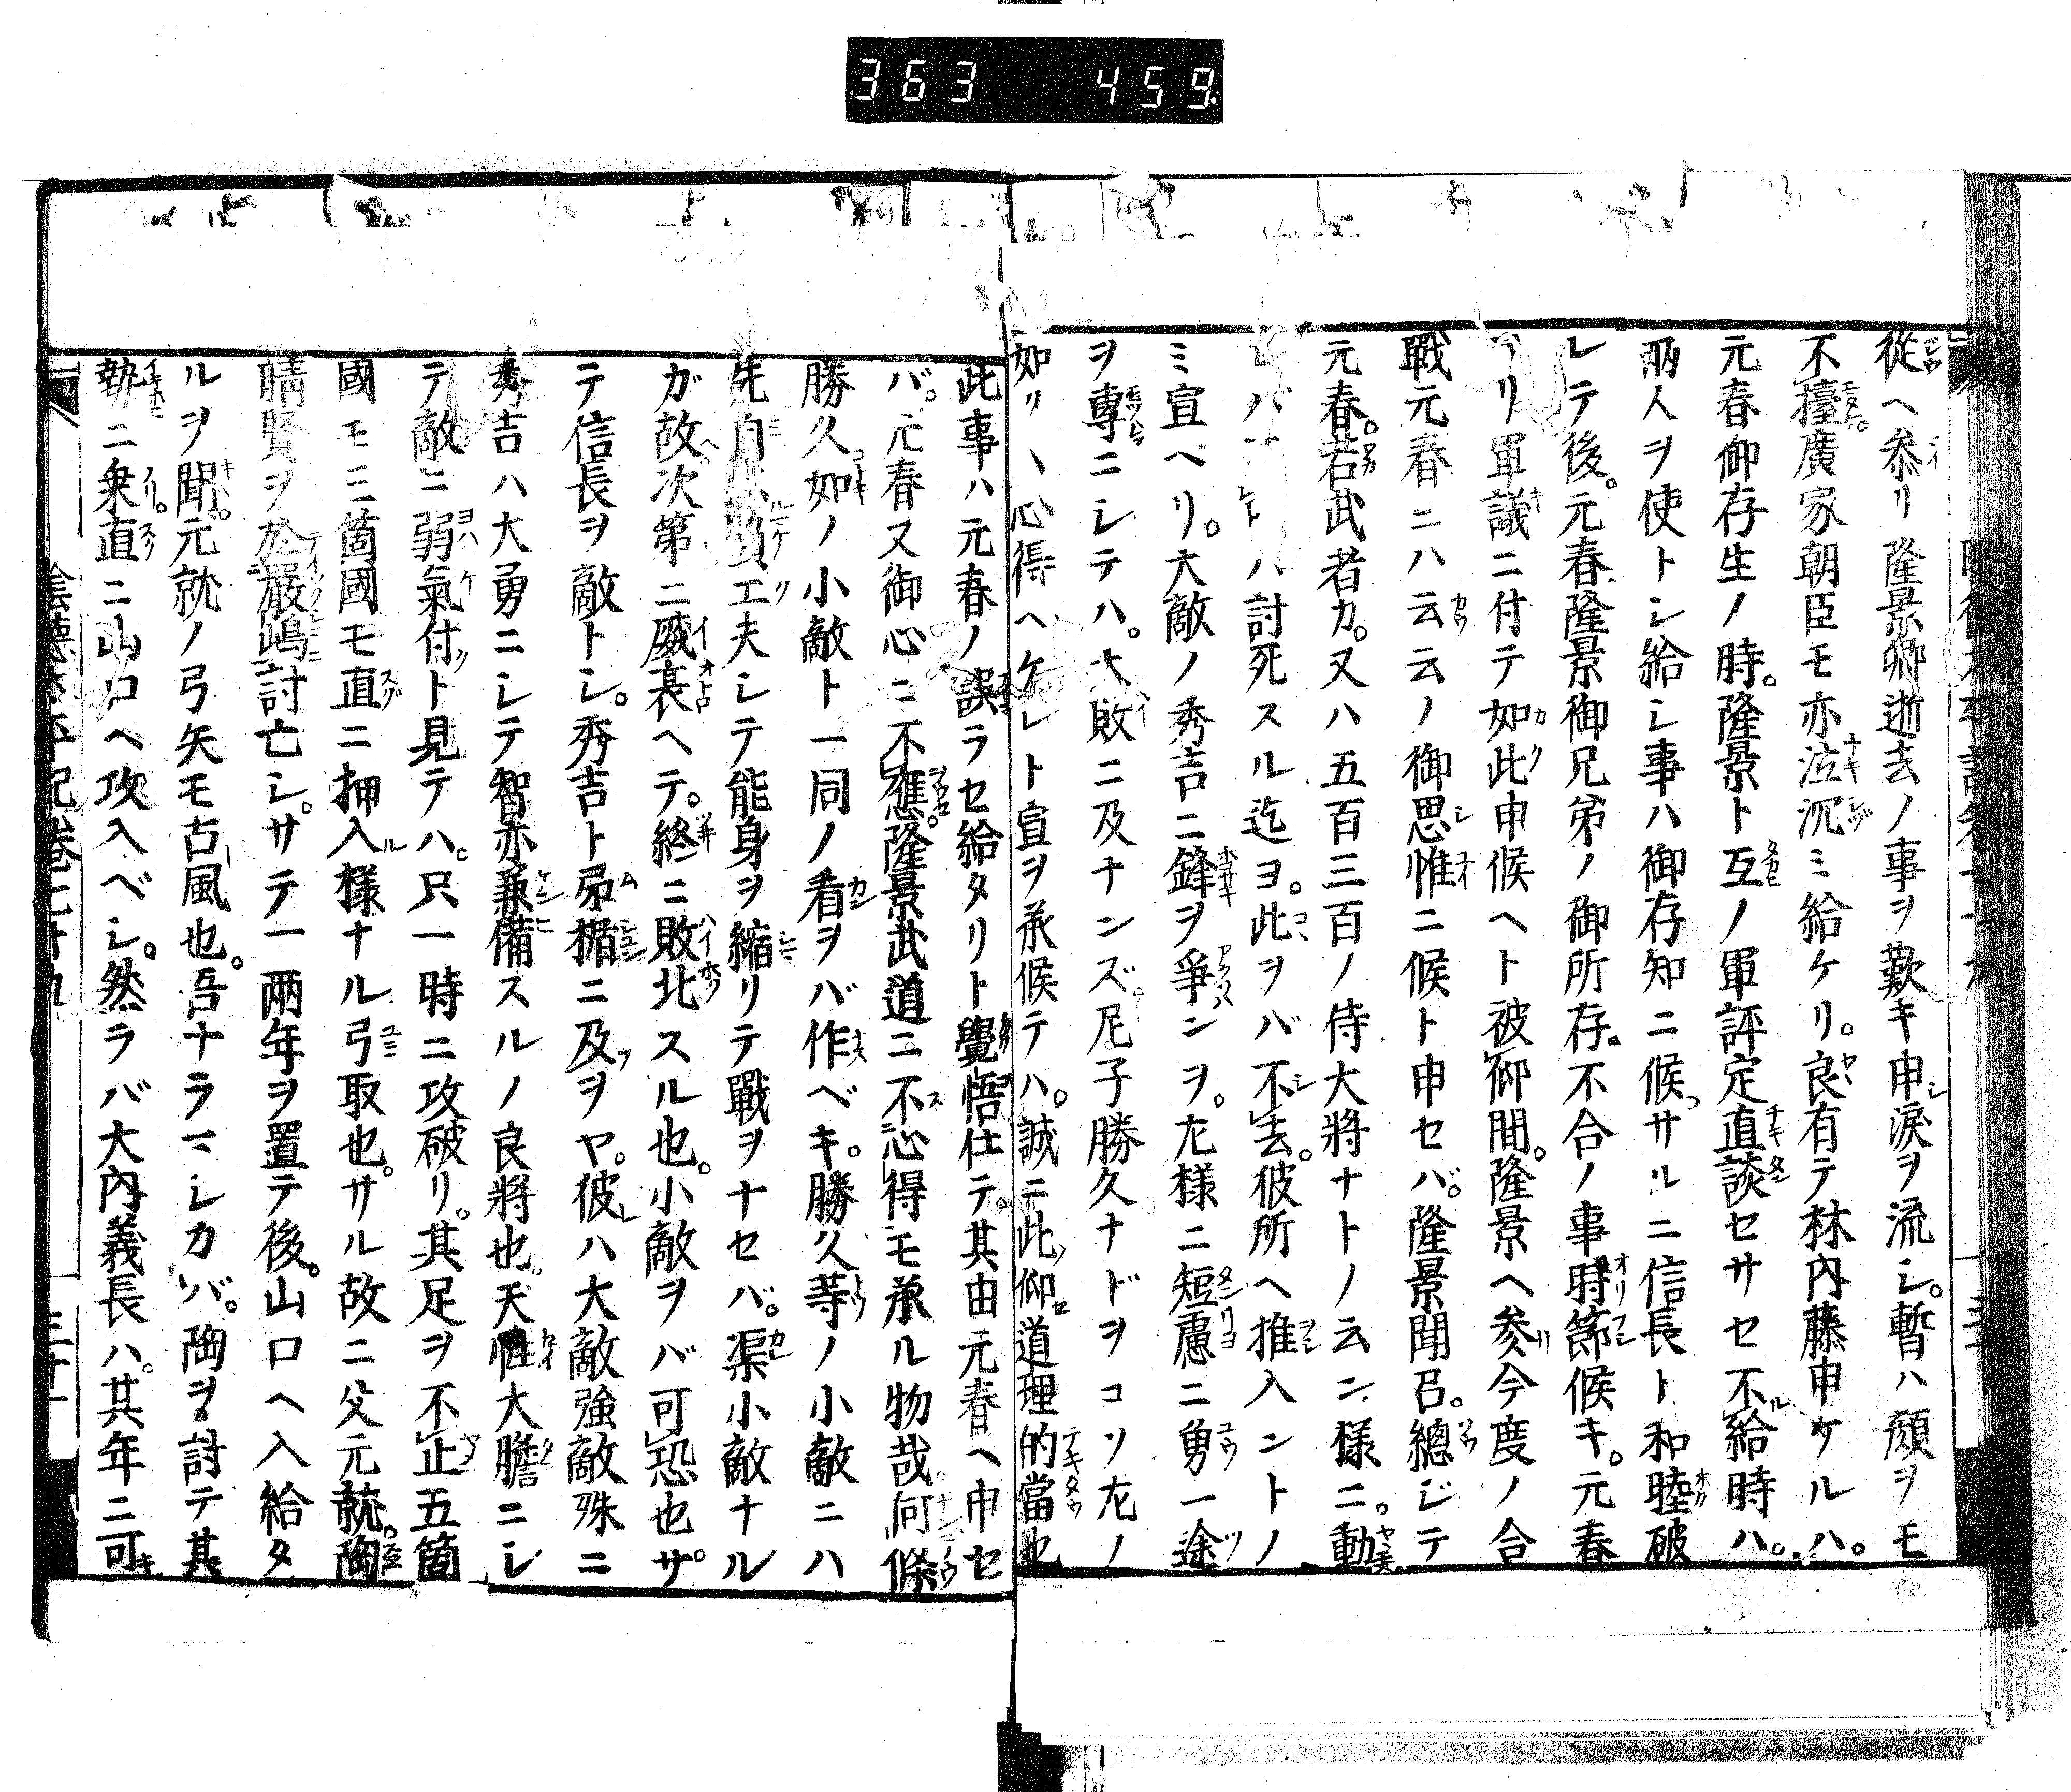 363 459
從ヘ參リ隆景卿逝去ノ事ヲ歎キ申淚ヲ流シ。暫ハ顔ヲモ
不擡廣家朝臣モ亦泣沉ミ給ケリ。良有テ林內藤申ケルハ。
元春御存生ノ時。隆景ト互ノ軍評定直談セサセ不給時ハ。
兩人ヲ使トシ給シ事ハ御存知ニ候。サルニ信長ト和睦破
レテ後。元春隆景御兄弟ノ御所存不合ノ事時節候キ。元春
リ軍議ニ付テ如此申候ヘト被仰間。隆景ヘ參今度ノ合
戰元春ニハ云云ノ御思惟ニ候ト申セバ。隆景聞召。總ジテ
元春。若武者カ。又ハ五百三百ノ侍大將ナトノ云ン樣ニ。動
バ ハ討死スル迄ヨ。此ヲバ不去。彼所ヘ推入ントノ
ミ宣ヘリ。大敵ノ秀吉ニ鋒ヲ爭ンヲ。左樣ニ短慮ニ勇一途
ヲ專ニシテハ。大敗ニ及ナンズ尼子勝久ナドヲコソ左ノ
如リヽ心得ヘケレト宣ヲ承候テハ。誠ニ此仰道理的當也
此事ハ元春ノ誤ラセ給タリト覺悟仕テ。其由元春ヘ申セ
バ。元春又御心ニ不應。隆景武道ニ不心得モ承ル物哉何條
勝久如ノ小敵ト一同ノ看ヲバ作ベキ。勝久等ノ小敵ニハ
先自 負工夫シテ能身ヲ縮リテ戰ヲナセバ。渠小敵ナル
ガ故次第ニ威衰ヘテ。終ニ敗北スル也。小敵ヲバ可恐也。サ
テ信長ヲ敵トシ。秀吉ト矛楯ニ及ヲヤ。彼ハ大敵強敵殊ニ
秀吉ハ大勇ニシテ智亦兼備スルノ良將也。天性大膽ニシ
テ敵ニ弱氣付ト見テハ。只一時ニ攻破リ。其足ヲ不止五箇
國モ三箇國モ直ニ押入樣ナル弓取也。サル故ニ父元就。陶
晴賢ヲ於嚴嶋討亡シ。サテ一兩年ヲ置テ後。山口ヘ入給タ
ルヲ聞。元就ノ弓矢モ古風也。吾ナラマシカバ。陶ヲ討テ其
勢ニ衆直ニ山口ヘ攻入ベシ。然ラバ大內義長ハ。其年ニ可